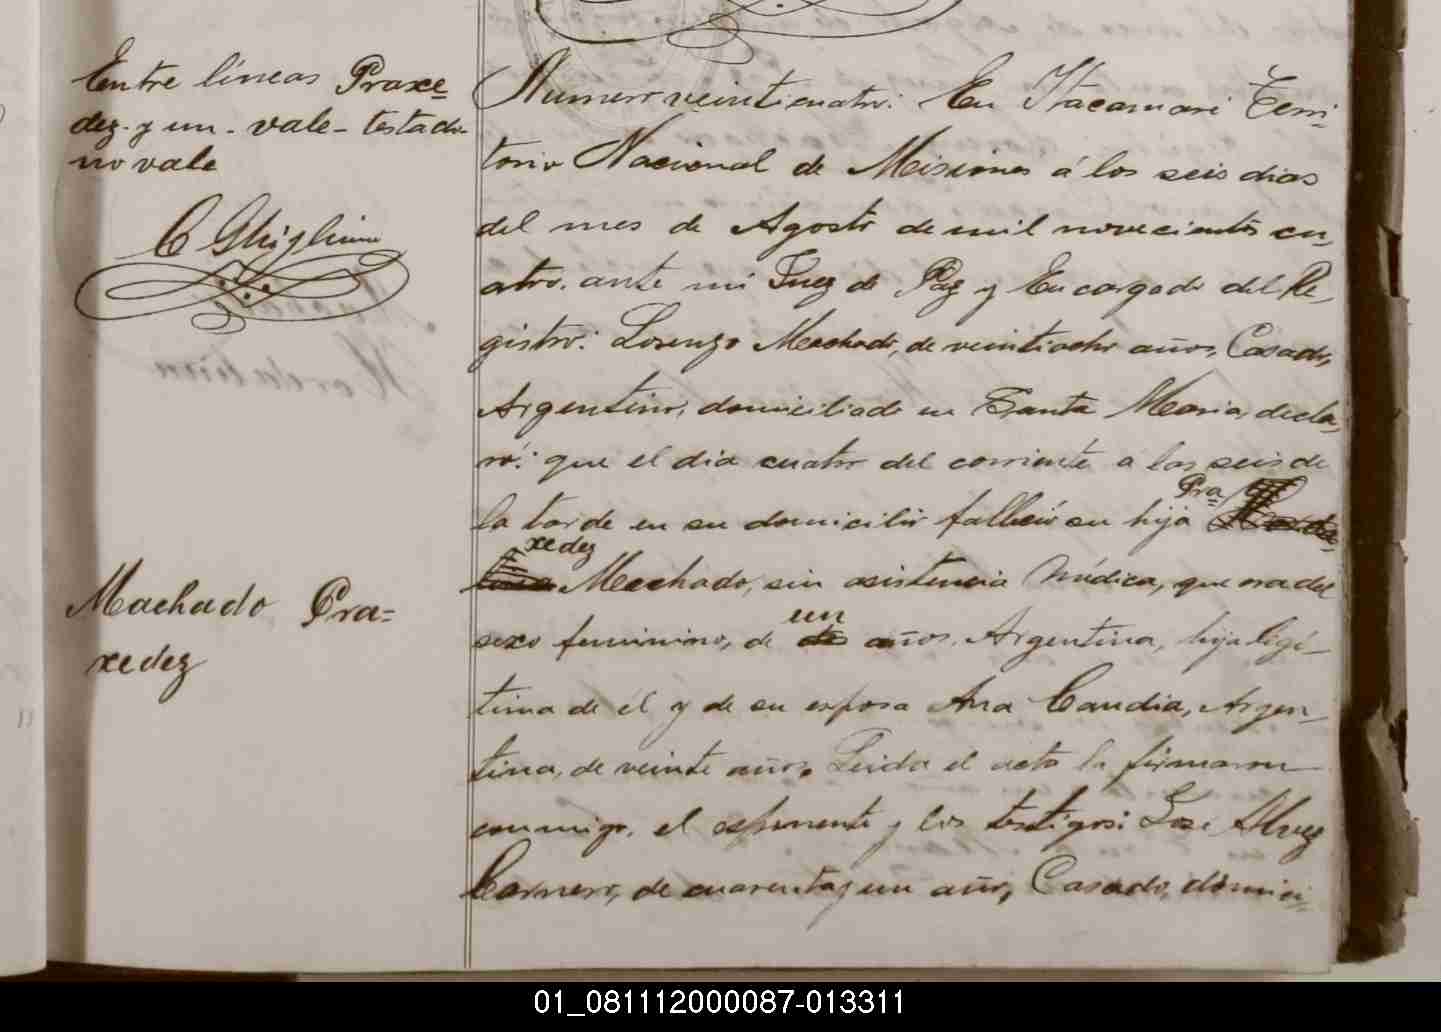 Entre líneas Praxe=
dez. y un. vale- testado.
no vale
C Ghiglione
Machado Pra=
xedez
Numero veinticuatro: En Itacaruaré Terri-
torio Nacional de Misiones á los seis dias
del mes de Agosto de mil novecientos cu-
atro. ante mi Juez de Paz y Encargado del Re-
gistro: Lorenzo Machado, de veintiocho años, Casado,
Argentino, domiciliado en Santa Maria, decla-
ró: que el dia cuatro del corriente a las seis de
la tarde en su domicilio falleció su hija Pra=
xedez Machado, sin asistencia Médica, que era del
sexo feminino, de un años. Argentina, hija legi-
tima de él y de su esposa Ana Candia, Argen-
tina, de veinte años. Leida el acta la firmaron
conmigo. el esponente y los testigos: José Alvez
Carnero, de cuarenta y un año, Casado, domici-
01_081112000087-013311